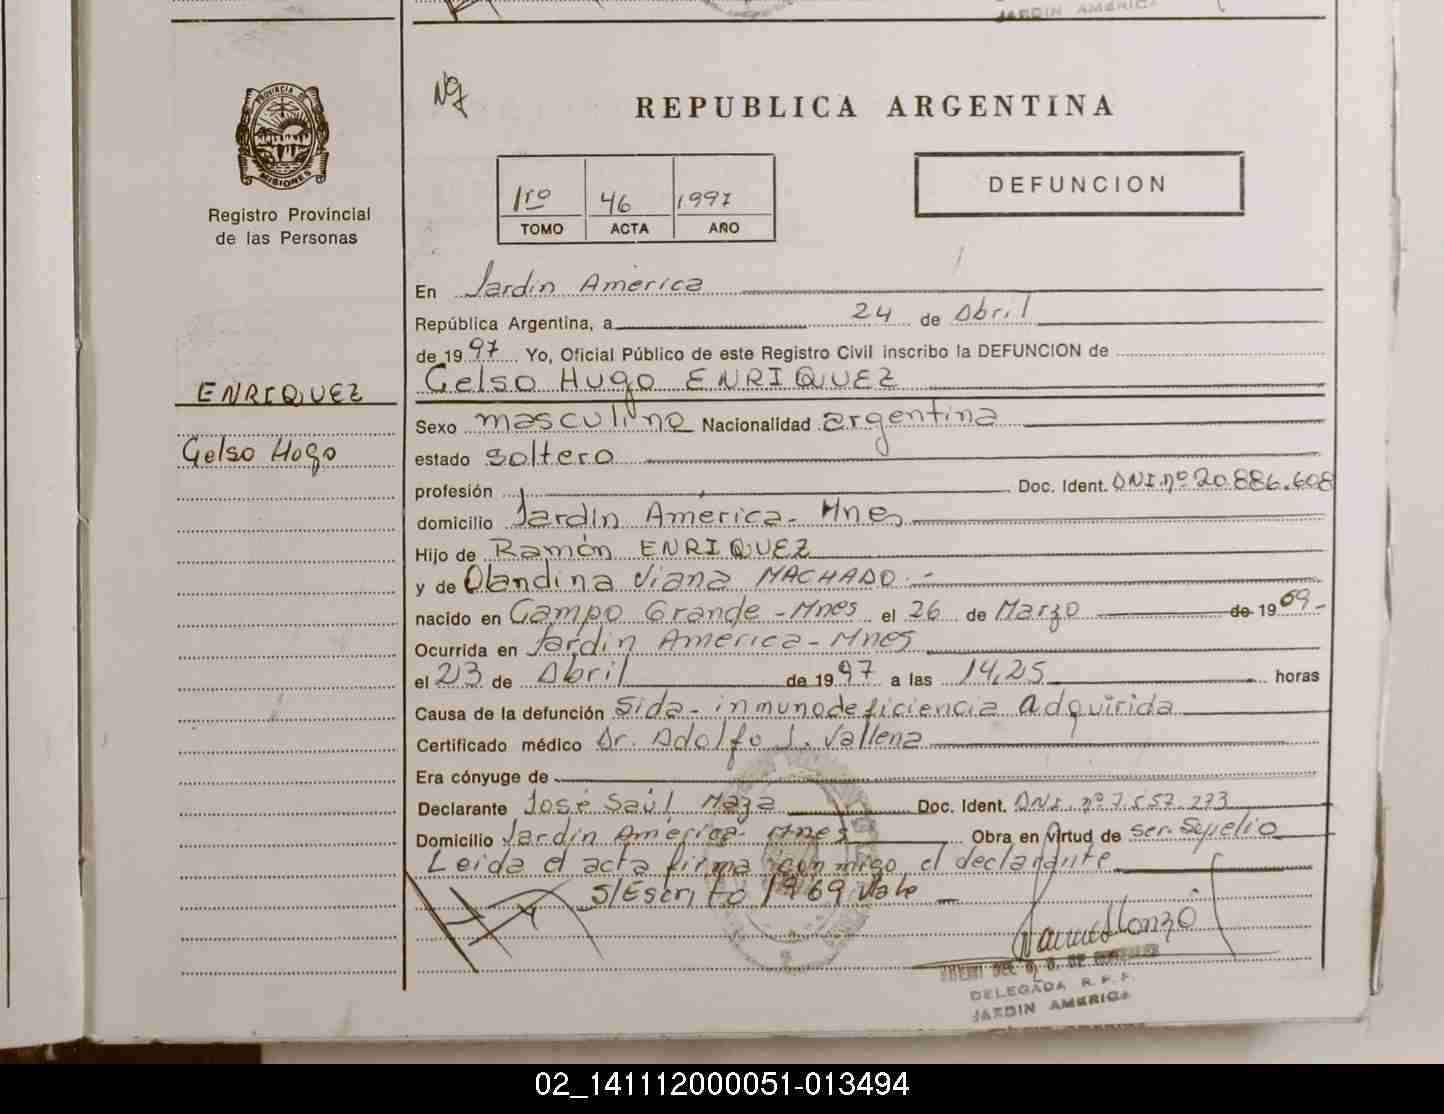 JARDIN AMERICA
PROVINCIA DE
MISIONES
Registro Provincial
de las Personas
ENRIQUEZ
Celso Hugo
REPUBLICA ARGENTINA
1ro 46 1997
TOMO ACTA AÑO
DEFUNCION
En Jardin America
República Argentina, a 24 de Abril
de 1997 Yo, Oficial Público de este Registro Civil inscribo la DEFUNCION de
Celso Hugo ENRIQUEZ
Sexo masculino Nacionalidad argentina
estado soltero
profesión Doc. Ident. DNI.nº20.886.608
domicilio Jardin America- Mnes
Hijo de Ramón ENRIQUEZ
y de Olandina Viana MACHADO.-
nacido en Campo Grande-Mnes el 26 de Marzo de 1969-
Ocurrida en Jardin America-Mnes
el 23 de Abril de 1997 a las 14,25 horas
Causa de la defunción Sida-inmunodeficiencia adquirida
Certificado médico Dr. Adolfo J. Vallena
Era cónyuge de
Declarante José Saúl Maza Doc. Ident. DNI. nº7.557.273
Domicilio Jardin América- Mnes Obra en virtud de ser. Sepelio
Leida el acta firma conmigo el declarante
S/Escrito 1969 Vale
DELEGADA R. P. P.
JARDIN AMERICA
02_141112000051-013494